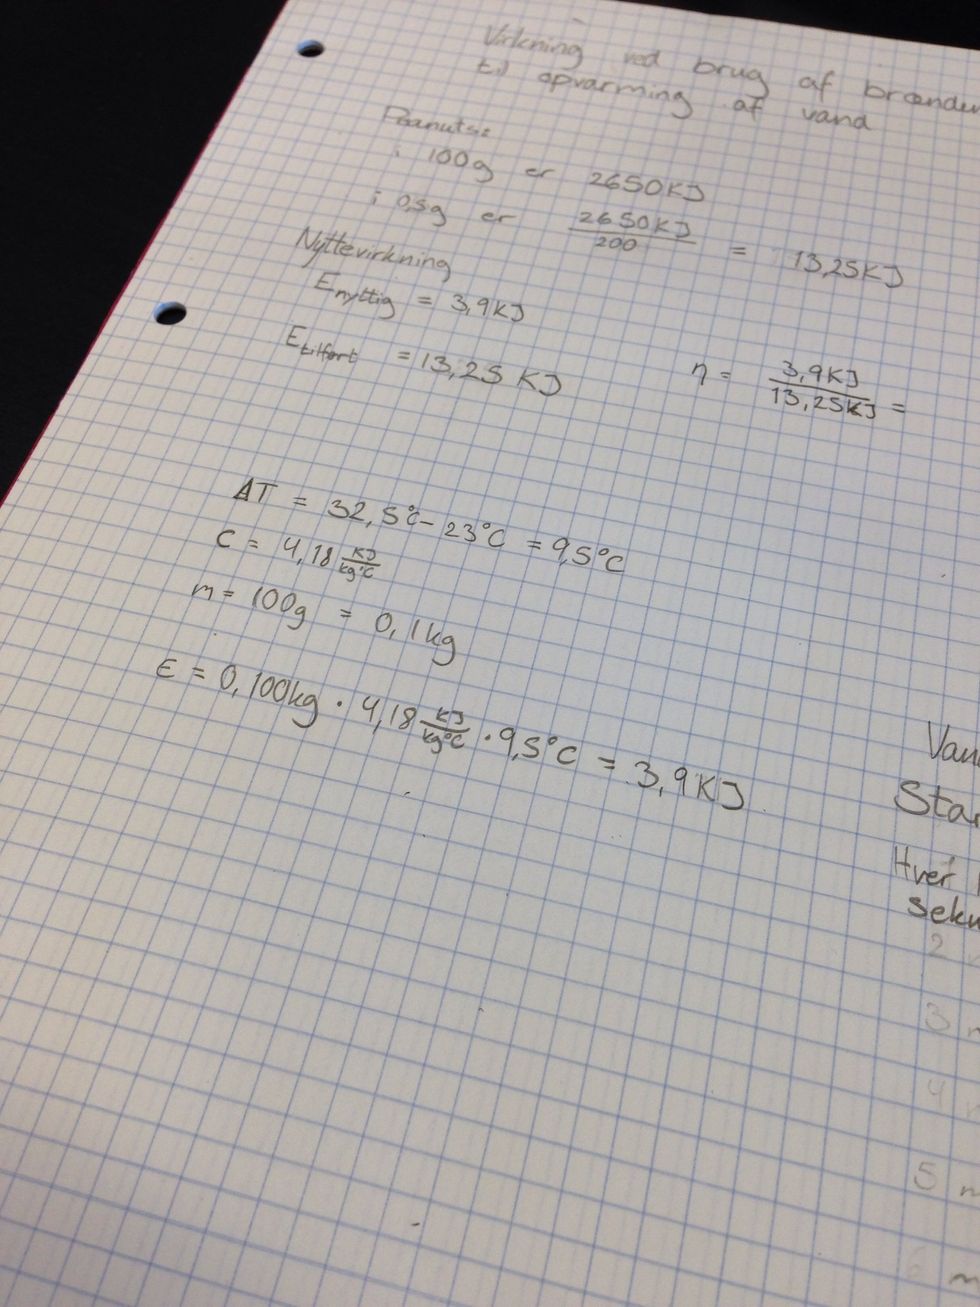 Virkning ved brug af
til opvarming af vand
Peanuts:
i 100g er 2650KJ
i 0,5g er 2650KJ/200 = 13,25KJ
Nyttevirkning
Enyttig = 3,9KJ
Etilført = 13,25 KJ
η = 3,9KJ/13,25KJ =
ΔT = 32,5°C - 23°C = 9,5°C
C = 4,18 KJ/kg°C
m = 100g = 0,1kg
E = 0,100kg · 4,18 KJ/kg°C · 9,5°C = 3,9KJ
Van
Star
Hver
Seku
2
3 m
4
5 m
m